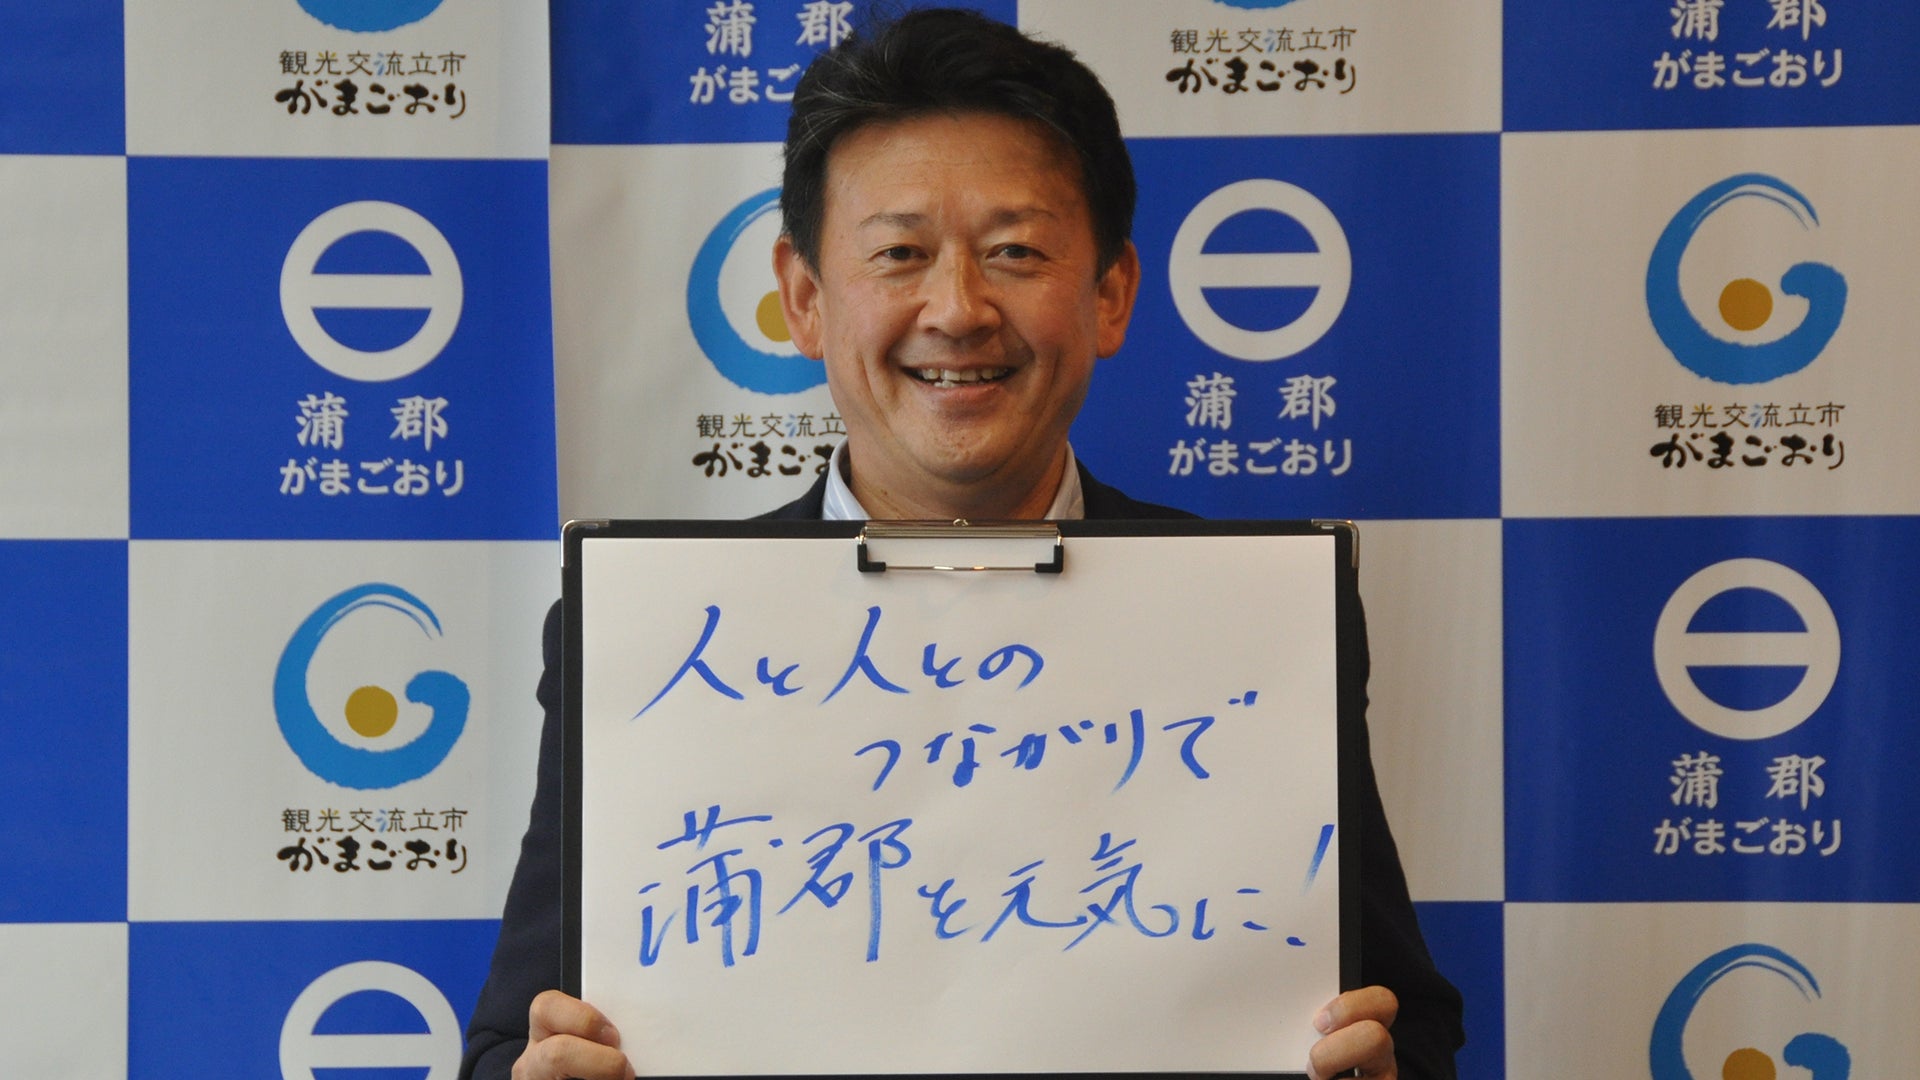 観光交流立市
がまごおり
蒲郡
がまご
観光交流立市
がまごおり
蒲郡
がまごおり
蒲郡
がまごおり
観光交流立
がまごお
蒲郡
がまごおり
観光交流立市
がまごおり
人と人との
つながりで
蒲郡を元気に!
観光交流立市
がまごおり
蒲郡
がまごおり